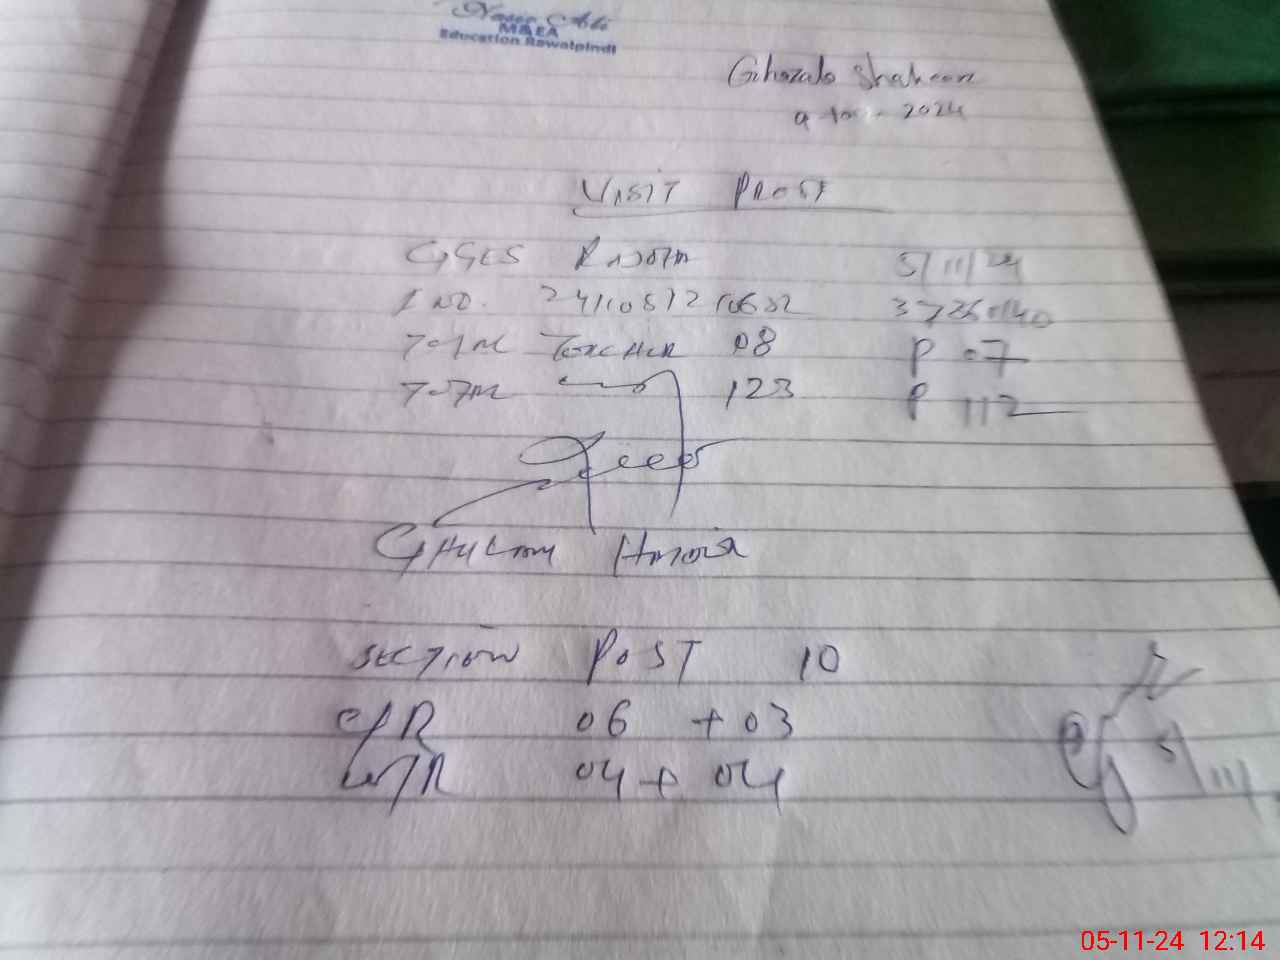 Naser Ali
M&EA
Education Rawalpindi
Ghazala Shaheen
2024
VISIT PROST
GGES 5/11/24
I NO. 37260140
TOTAL TEACHER 08 P 07
TOTAL 123 P 112
GHULAM
SECTION POST 10
C/R 06 + 03
W/R 04 + 04
5/11/
05-11-24 12:14